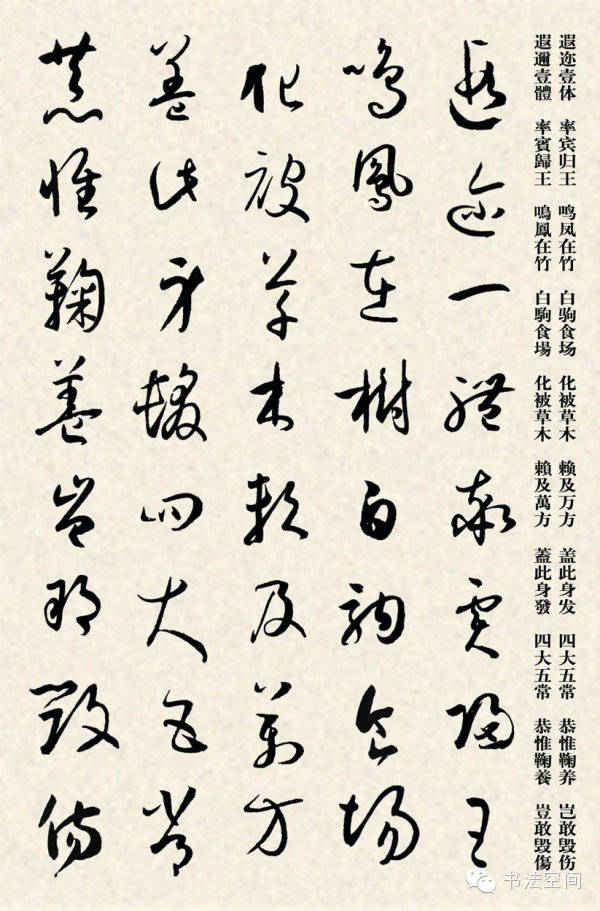 遐迩壹体 率宾归王 鸣凤在竹 白驹食场 化被草木 赖及万方 盖此身发 四大五常 恭惟鞠养 岂敢毁伤
遐邇壹體 率賓歸王 鳴鳳在竹 白駒食場 化被草木 賴及萬方 蓋此身發 四大五常 恭惟鞠養 豈敢毀傷
遐迩一體率賓歸王
鳴鳳在樹白駒食場
化被草木賴及萬方
蓋此身髮四大五常
恭惟鞠養豈敢毀傷
书法空间